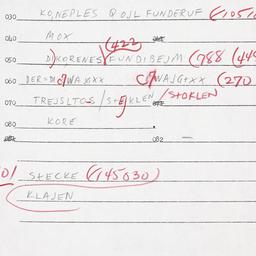 030 KONEPLES Q OJL FUNDERUF (1051
040 MOX (422
050 D)KORENES/FUNDIBEJM (788 (449
060 DER=DI WAXXX C/WAJG+XX (270
070 TREJSLTOS/STEJKLEN /STOKLEN
080 KORE
082 —
01 STECKE (145030)
KLAJEN